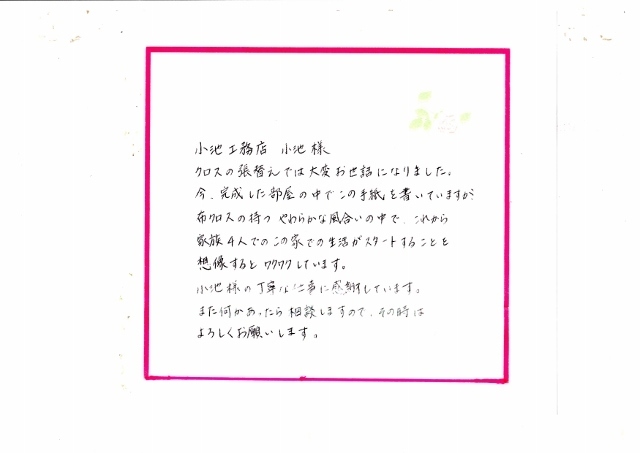 小池工務店 小池様
クロスの張替えでは大変お世話になりました。
今、完成した部屋の中でこの手紙を書いていますが
布クロスの持つ やわらかな風合いの中で、これから
家族4人でのこの家での生活がスタートすることを
想像するとワクワクしています。
小池様の丁寧な仕事に感謝しています。
また何かあったら相談しますので、その時は
よろしくお願いします。